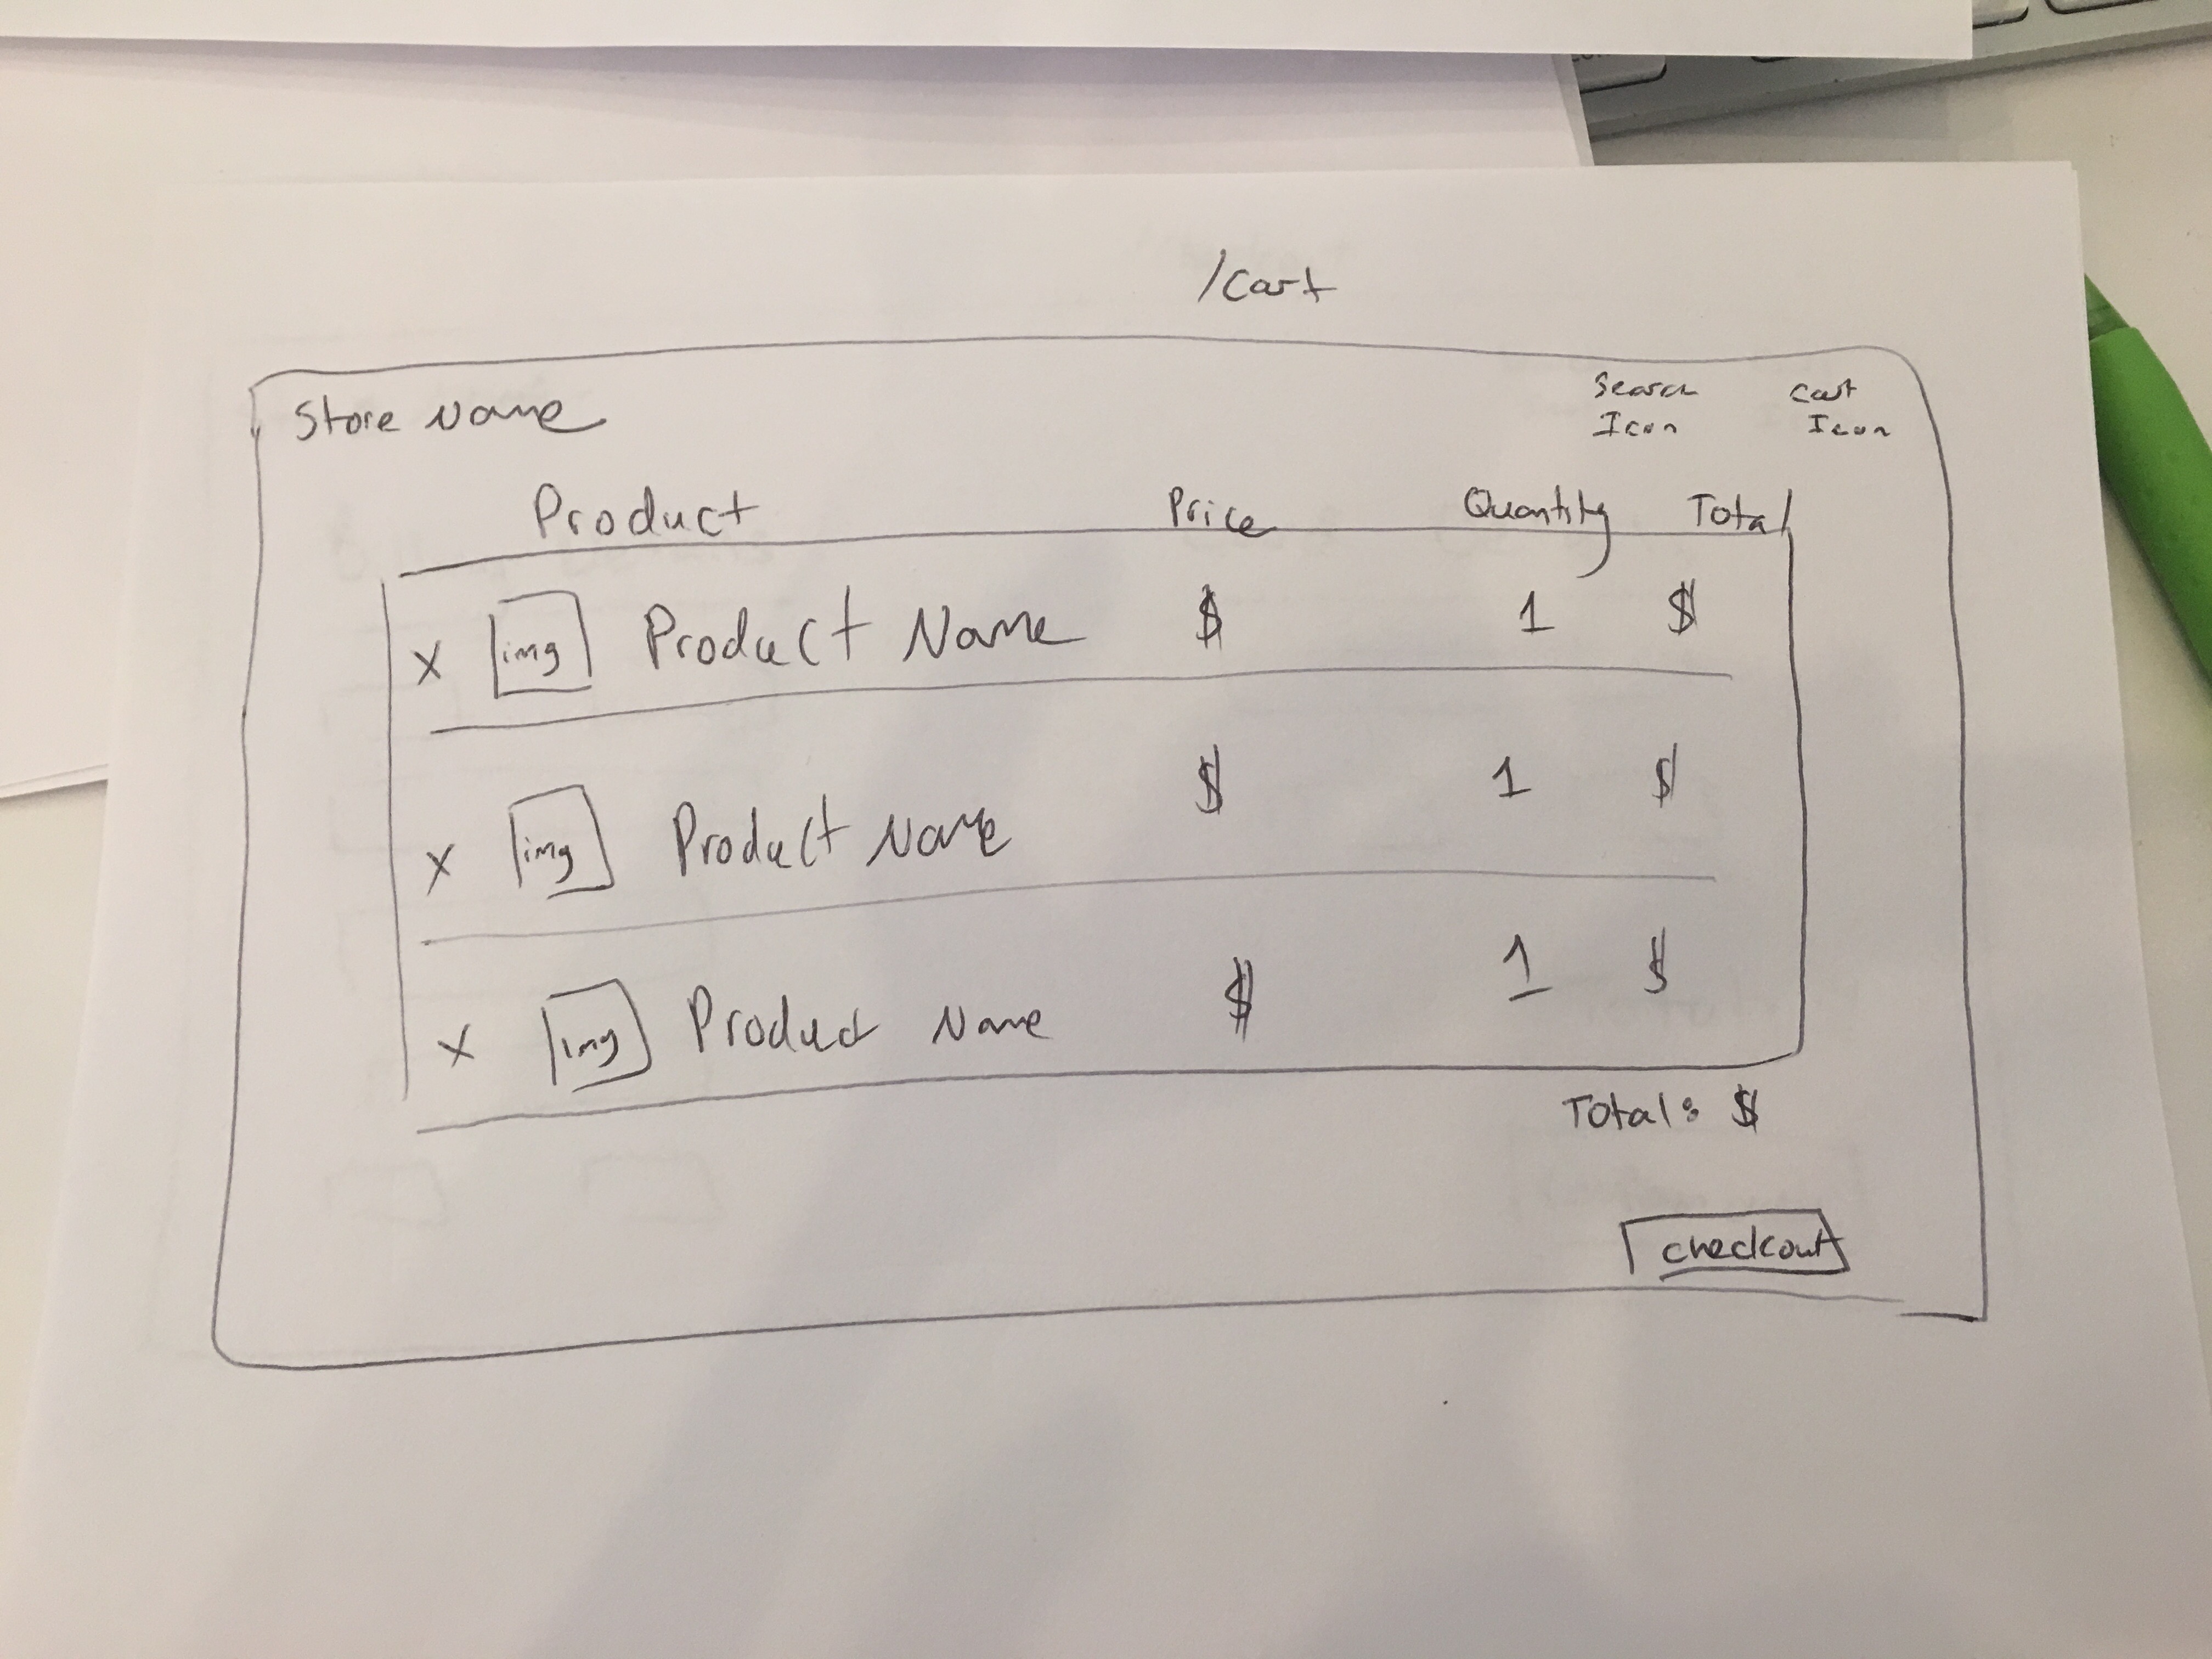 /Cart
Store Name
Search Icon
Cart Icon
Product Price Quantity Total
X img Product Name $ 1 $
X img Product Name $ 1 $
X img Product Name $ 1 $
Total: $
checkout